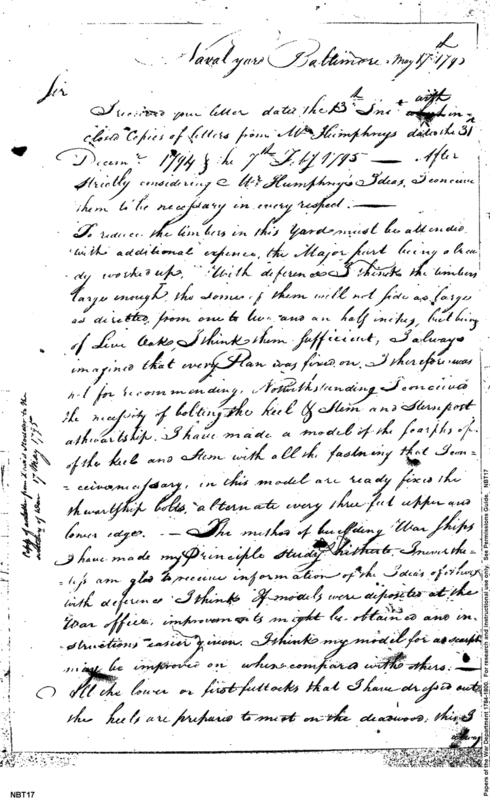 Naval yard Baltimore May 17th 1795
Sir
I received your letter dated the 13th Inst with in-
closed Copies of letters from Mr Humphrys dated the 31
Decemr 1794 & the 7th Feby 1795 — After
strictly considering Mr Humphrys Ideas, I conceive
them to be necessary in every respect. —
To reduce the timbers in this Yard must be attended
with additional expence, the Major part being alrea-
dy worked up, With deference I think the timbers
large enough, tho some of them will not side as large
as directed, from one to two and an half inches, but being
of Live Oak, I think them sufficient, I always
imagined that every Plan was fixed on, I therefore was
not for recommending, Notwithstanding I conceived
the necessity of bolting the keel & Stem and Sternpost
athwartship. I have made a model of the scarphs of
of the keel and Stem with all the fastning that I con-
ceive necessary, in this model are ready fixed the
thwartship bolts, alternate every three feet upper and
lower edge. — The method of building War Ships
I have made my Principle study hitherto, Neverthe-
less am glad to receive information of the Ideas of others,
with deference I think If models were deposited at the
War office, improvements might be obtained and in-
structions easier given. I think my model for a scarph
may be improved on when compared with others. —
All the lower or first futtocks that I have dressed out
the heels are prepared to meet on the deadwood; this I
alway
Copy of a letter from
17 May 1795
NBT17
Papers of the War Department 1784-1800. For research and instructional use only. See Permissions Guide. NBT17